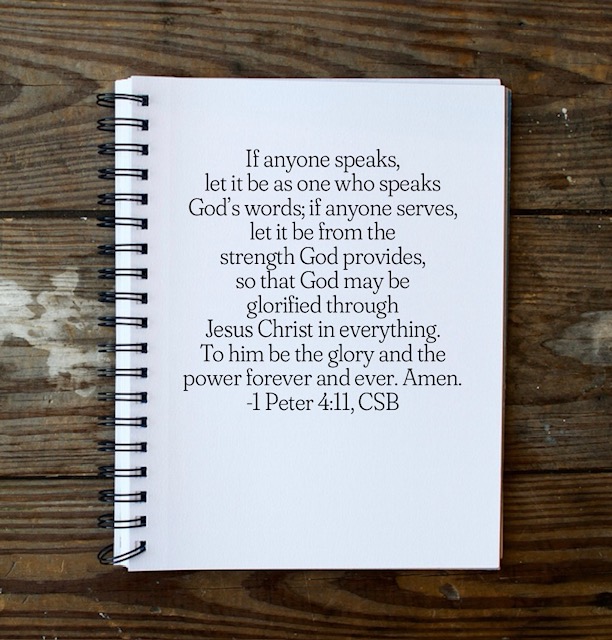 If anyone speaks,
let it be as one who speaks
God's words; if anyone serves,
let it be from the
strength God provides,
so that God may be
glorified through
Jesus Christ in everything.
To him be the glory and the
power forever and ever. Amen.
-1 Peter 4:11, CSB